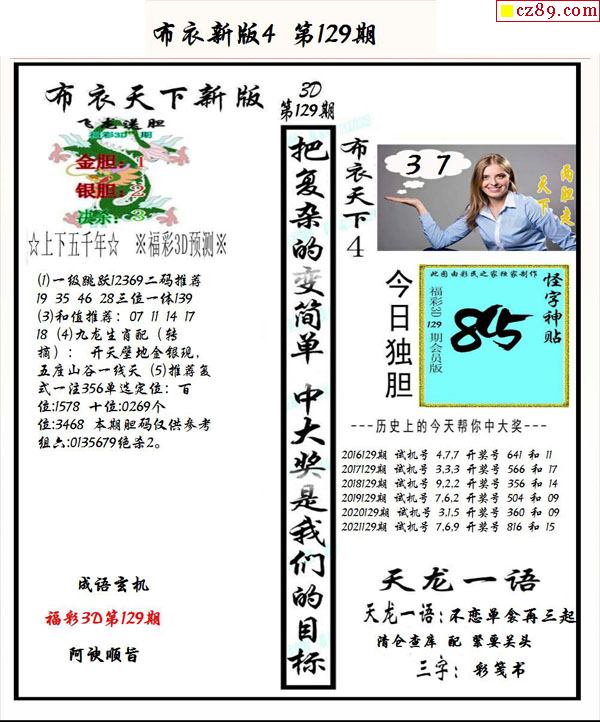 cz89.com
布衣新版4 第129期
布衣天下新版
飞龙送胆
福彩3D 期
金胆:1
银胆:2
决杀:3
☆上下五千年☆ ※福彩3D预测※
(1)一级跳跃12369二码推荐
19 35 46 28三位一体139
(3)和值推荐: 07 11 14 17
18 (4)九龙生肖配(转
摘): 开天壁地金银现,
五度山谷一线天 (5)推荐复
式一注356单选定位: 百
位:1578 十位:0269个
位:3468 本期胆码仅供参考
组六:0135679绝杀2。
成语玄机
福彩3D第129期
阿谀顺旨
3D
第129期
把复杂的变简单 中大奖是我们的目标
布衣天下4
3 7
两胆走天下
今日独胆
此图由彩民之家独家制作
福彩3D 129 期会员版
815
怪字神贴
---历史上的今天帮你中大奖---
2016129期 试机号 4,7,7 开奖号 641 和 11
2017129期 试机号 3,3,3 开奖号 566 和 17
2018129期 试机号 9,2,2 开奖号 356 和 14
2019129期 试机号 7,6,2 开奖号 504 和 09
2020129期 试机号 3,1,5 开奖号 360 和 09
2021129期 试机号 7,6,9 开奖号 816 和 15
天龙一语
天龙一语: 不恋单食再三起
清仓查库 配 紧要关头
三字: 彩笺书